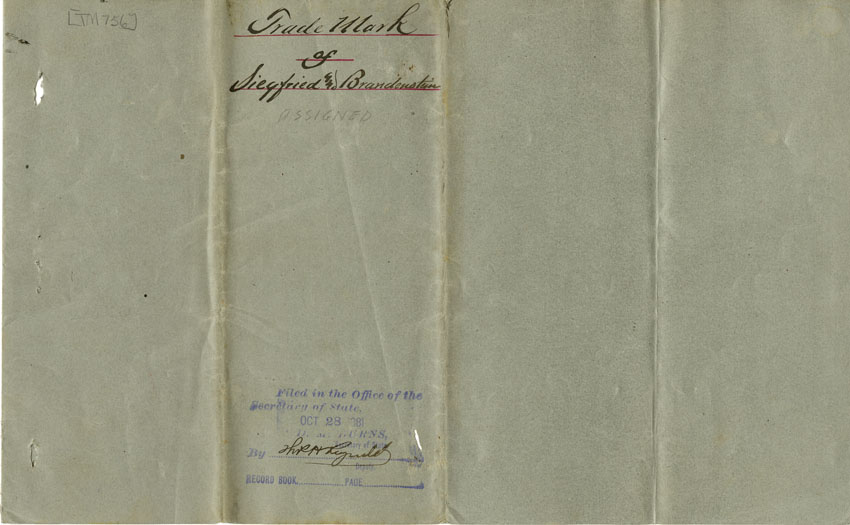 [TM 736]
Trade Mark
of
Siegfried and Brandenstein
ASSIGNED
Filed in the Office of the
Secretary of State,
OCT 28
By
Deputy
RECORD BOOK PAGE